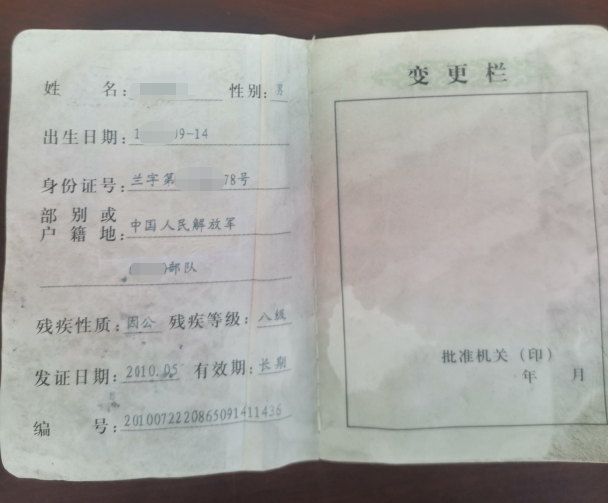 姓 名: 性别: 男
出生日期: 1 09-14
身份证号: 兰字第 78号
部别或
户籍地: 中国人民解放军
( )部队
残疾性质: 因公 残疾等级: 八级
发证日期: 2010.05 有效期: 长期
编 号: 2010072220865091411436
变更栏
批准机关（印）
年 月